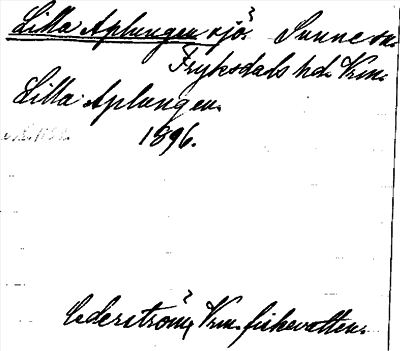 Lilla Aplungen sjö. Sunne sn.
Fryksdals hd. Vrm.
Lilla Aplungen.
1896.
Cederström, Vrm. fiskevatten.